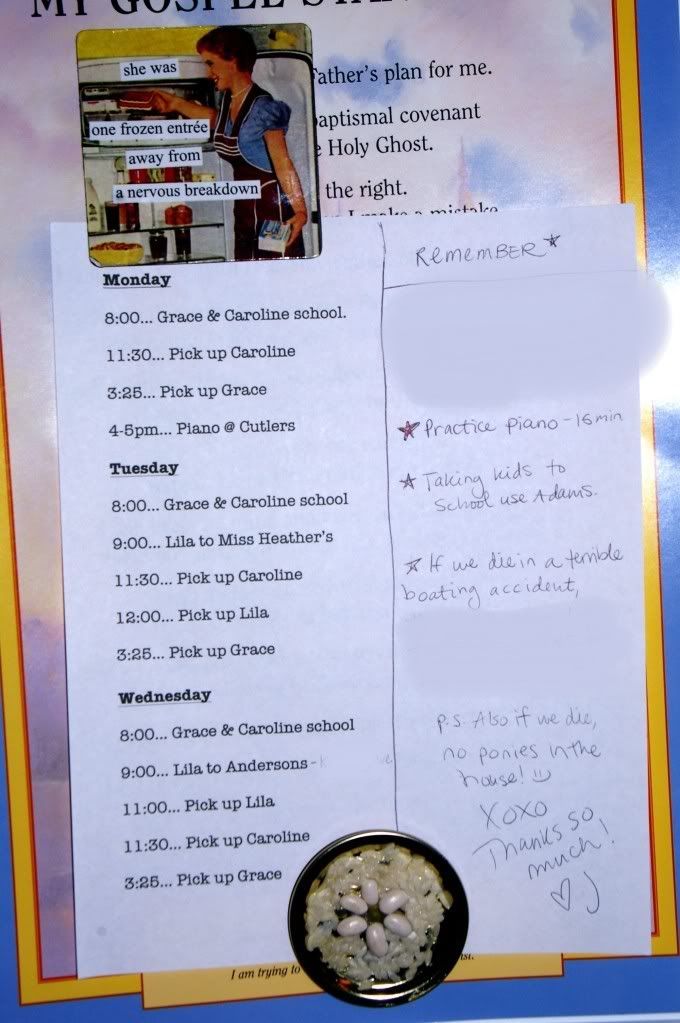 MY GOSPEL
she was
one frozen entrée
away from
a nervous breakdown
Father's plan for me.
baptismal covenant
Holy Ghost.
the right.
I make a mistake
Monday
8:00... Grace & Caroline school.
11:30... Pick up Caroline
3:25... Pick up Grace
4-5pm... Piano @ Cutlers
Tuesday
8:00... Grace & Caroline school
9:00... Lila to Miss Heather's
11:30... Pick up Caroline
12:00... Pick up Lila
3:25... Pick up Grace
Wednesday
8:00... Grace & Caroline school
9:00... Lila to Andersons -
11:00... Pick up Lila
11:30... Pick up Caroline
3:25... Pick up Grace
RemembER*
Practice piano - 15 min
Taking kids to
School use Adams.
If we die in a terrible
boating accident,
p.s. Also if we die,
no ponies in the
house!
XOXO
Thanks so
much!
J
I am trying to